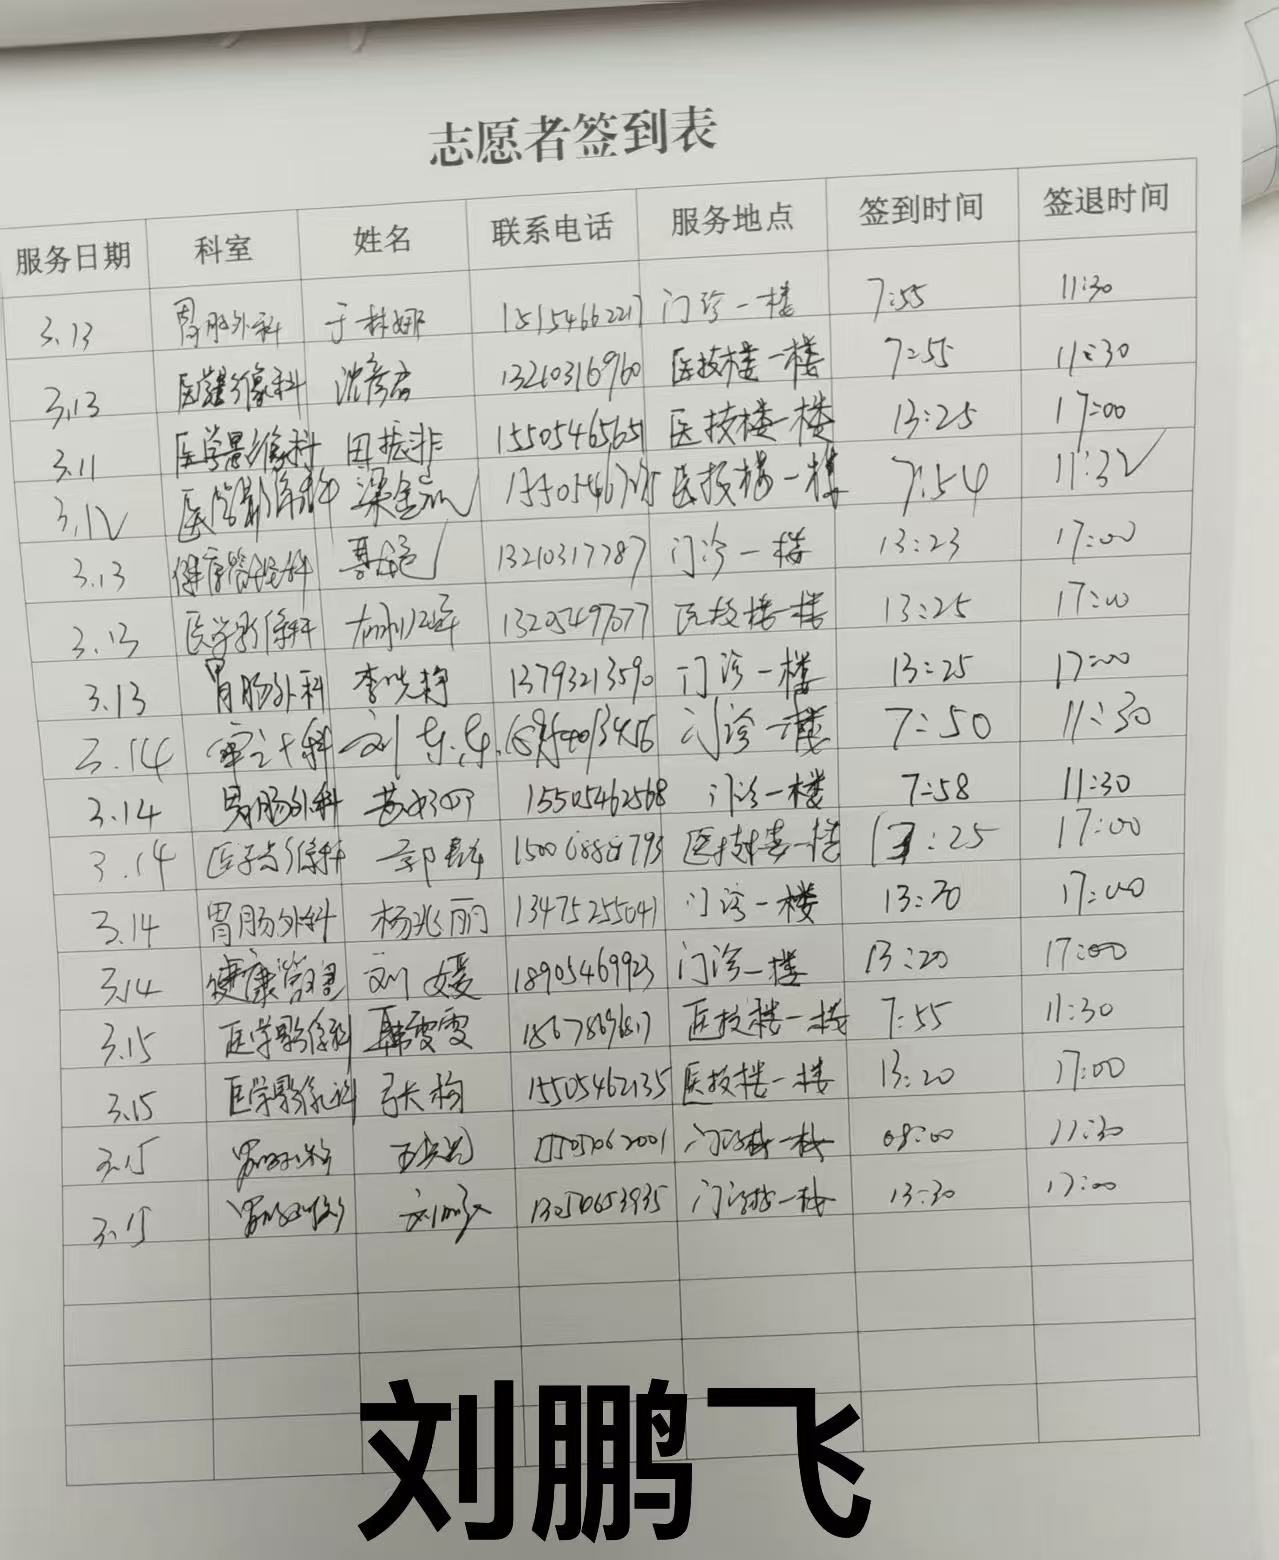 志愿者签到表
服务日期 科室 姓名 联系电话 服务地点 签到时间 签退时间
3.13 胃肠外科 于林娜 15154662217 门诊一楼 7:55 11:30
3.13 医学影像科 沈彦君 13210316960 医技楼一楼 7:55 11:30
3.11 医学影像科 田振非 15505465651 医技楼一楼 13:25 17:00
3.12 医学影像科 医技楼一楼 7:54 11:32
3.13 健康管理科 13210317787 门诊一楼 13:23 17:00
3.13 医学影像科 13205497077 医技楼一楼 13:25 17:00
3.13 胃肠外科 李晓静 13793213590 门诊一楼 13:25 17:00
3.14 审计科 刘东东 门诊一楼 7:50 11:30
3.14 胃肠外科 15505462568 门诊一楼 7:58 11:30
3.14 医学影像科 郭群 医技楼一楼 13:25 17:00
3.14 胃肠外科 杨兆丽 13475255041 门诊一楼 13:30 17:00
3.14 健康管理 刘媛 18905469923 门诊一楼 13:20 17:00
3.15 医学影像科 韩雯雯 医技楼一楼 7:55 11:30
3.15 医学影像科 张梅 15505462135 医技楼一楼 13:20 17:00
3.15 胃肠外科 门诊楼一楼 08:00 11:30
3.15 胃肠外科 门诊楼一楼 13:30 17:00
刘鹏飞